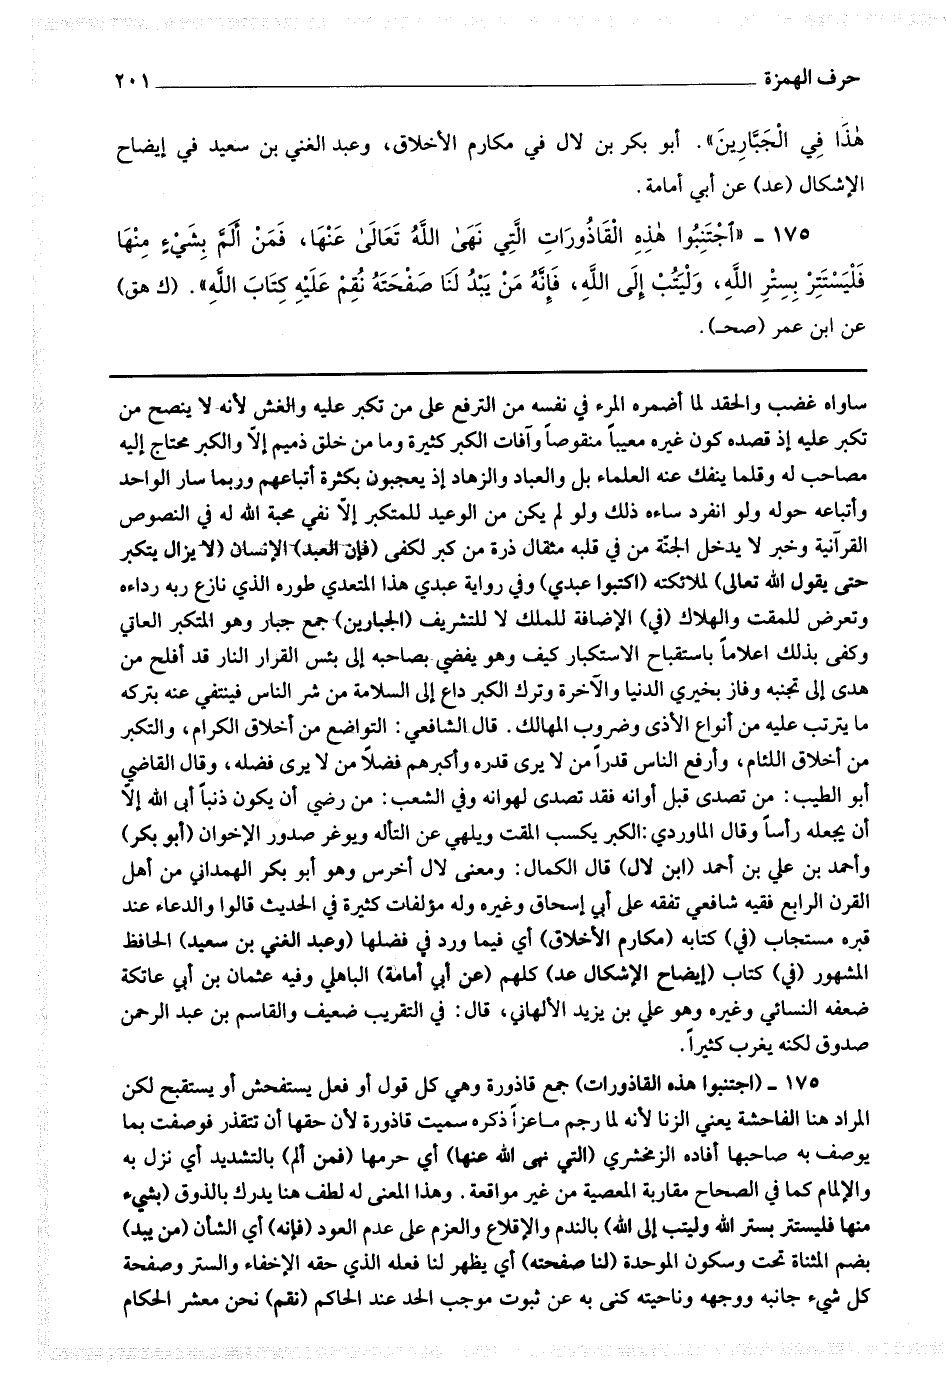 حرف الهمزة ٢٠١
هٰذَا فِي الْجَبَّارِينَ». أبو بكر بن لال في مكارم الأخلاق، وعبد الغني بن سعيد في إيضاح
الإشكال (عد) عن أبي أمامة.
١٧٥ ـ «اجْتَنِبُوا هٰذِهِ الْقَاذُورَاتِ الَّتِي نَهَىٰ اللَّهُ تَعَالَىٰ عَنْهَا، فَمَنْ أَلَمَّ بِشَيْءٍ مِنْهَا
فَلْيَسْتَتِرْ بِسِتْرِ اللَّهِ، وَلْيَتُبْ إِلَى اللَّهِ، فَإِنَّهُ مَنْ يَبْدُ لَنَا صَفْحَتَهُ نُقِمْ عَلَيْهِ كِتَابَ اللَّهِ». (ك هق)
عن ابن عمر (صحـ).
ساواه غضب والحقد لما أضمره المرء في نفسه من الترفع على من تكبر عليه والغش لأنه لا ينصح من
تكبر عليه إذ قصده كون غيره معيباً منقوصاً وآفات الكبر كثيرة وما من خلق ذميم إلاّ والكبر محتاج إليه
مصاحب له وقلما ينفك عنه العلماء بل والعباد والزهاد إذ يعجبون بكثرة أتباعهم وربما سار الواحد
وأتباعه حوله ولو انفرد ساءه ذلك ولو لم يكن من الوعيد للمتكبر إلاّ نفي محبة الله له في النصوص
القرآنية وخبر لا يدخل الجنّة من في قلبه مثقال ذرة من كبر لكفى (فإن العبد) الإنسان (لا يزال يتكبر
حتى يقول الله تعالى) لملائكته (اكتبوا عبدي) وفي رواية عبدي هذا المتعدي طوره الذي نازع ربه رداءه
وتعرض للمقت والهلاك (في) الإضافة للملك لا للتشريف (الجبارين) جمع جبار وهو المتكبر العاتي
وكفى بذلك اعلاماً باستقباح الاستكبار كيف وهو يفضي بصاحبه إلى بئس القرار النار قد أفلح من
هدى إلى تجنبه وفاز بخيري الدنيا والآخرة وترك الكبر داع إلى السلامة من شر الناس فينتفي عنه بتركه
ما يترتب عليه من أنواع الأذى وضروب المهالك. قال الشافعي: التواضع من أخلاق الكرام، والتكبر
من أخلاق اللئام، وأرفع الناس قدراً من لا يرى قدره وأكبرهم فضلاً من لا يرى فضله، وقال القاضي
أبو الطيب: من تصدى قبل أوانه فقد تصدى لهوانه وفي الشعب: من رضي أن يكون ذنباً أبى الله إلاّ
أن يجعله رأساً وقال الماوردي:الكبر يكسب المقت ويلهي عن التأله ويوغر صدور الإخوان (أبو بكر)
وأحمد بن علي بن أحمد (ابن لال) قال الكمال: ومعنى لال أخرس وهو أبو بكر الهمداني من أهل
القرن الرابع فقيه شافعي تفقه على أبي إسحاق وغيره وله مؤلفات كثيرة في الحديث قالوا والدعاء عند
قبره مستجاب (في) كتابه (مكارم الأخلاق) أي فيما ورد في فضلها (وعبد الغني بن سعيد) الحافظ
المشهور (في) كتاب (إيضاح الإشكال عد) كلهم (عن أبي أمامة) الباهلي وفيه عثمان بن أبي عاتكة
ضعفه النسائي وغيره وهو علي بن يزيد الألهاني، قال: في التقريب ضعيف والقاسم بن عبد الرحمن
صدوق لكنه يغرب كثيراً.
١٧٥ ـ (اجتنبوا هذه القاذورات) جمع قاذورة وهي كل قول أو فعل يستفحش أو يستقبح لكن
المراد هنا الفاحشة يعني الزنا لأنه لما رجم ماعزاً ذكره سميت قاذورة لأن حقها أن تتقذر فوصفت بما
يوصف به صاحبها أفاده الزمخشري (التي نهى الله عنها) أي حرمها (فمن ألم) بالتشديد أي نزل به
والإلمام كما في الصحاح مقاربة المعصية من غير مواقعة. وهذا المعنى له لطف هنا يدرك بالذوق (بشيء
منها فليستتر بستر الله وليتب إلى الله) بالندم والإقلاع والعزم على عدم العود (فإنه) أي الشأن (من يبد)
بضم المثناة تحت وسكون الموحدة (لنا صفحته) أي يظهر لنا فعله الذي حقه الإخفاء والستر وصفحة
كل شيء جانبه ووجهه وناحيته كنى به عن ثبوت موجب الحد عند الحاكم (نقم) نحن معشر الحكام